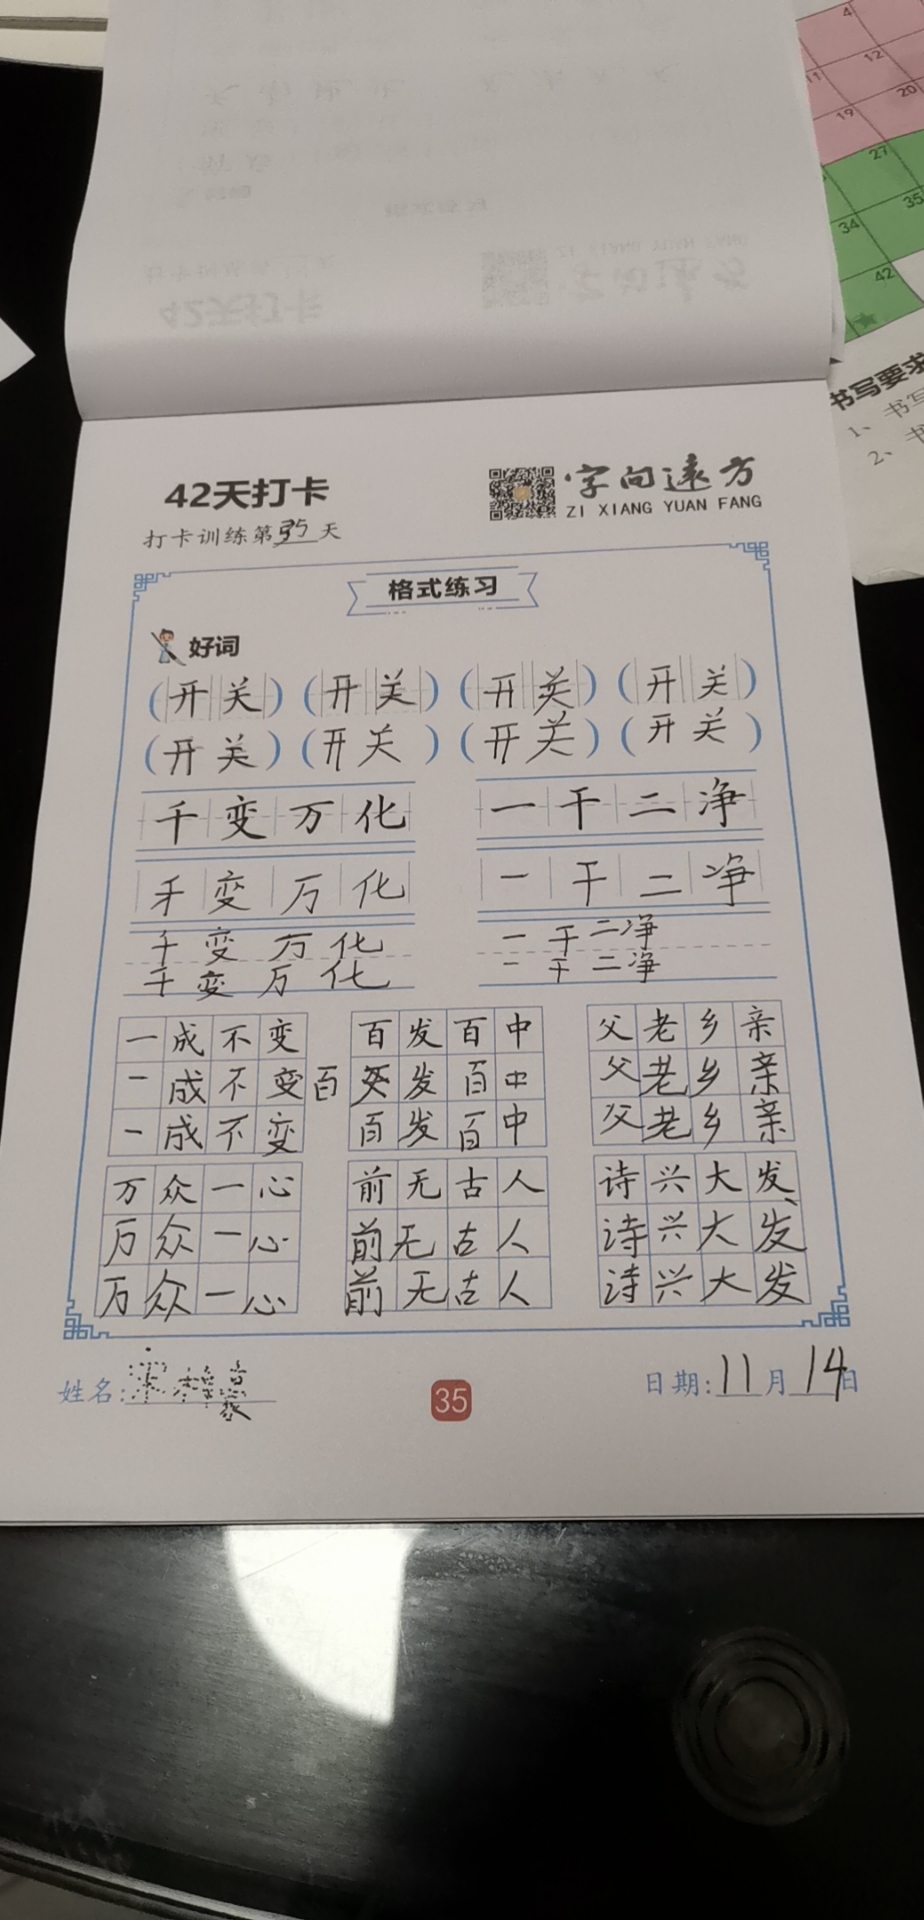 4
11 12
19 20
27
34 35
42
书写要求
1、书写
2、书
42天打卡
字向远方
ZI XIANG YUAN FANG
打卡训练第35天
格式练习
好词
(开关) (开关) (开关) (开关)
(开关) (开关) (开关) (开关)
千变万化 一干二净
千变万化 一干二净
千变万化 一干二净
千变万化 一干二净
一成不变 百发百中 父老乡亲
一成不变 百 发百中 父老乡亲
一成不变 百发百中 父老乡亲
万众一心 前无古人 诗兴大发
万众一心 前无古人 诗兴大发
万众一心 前无古人 诗兴大发
姓名: 35 日期:11月14日